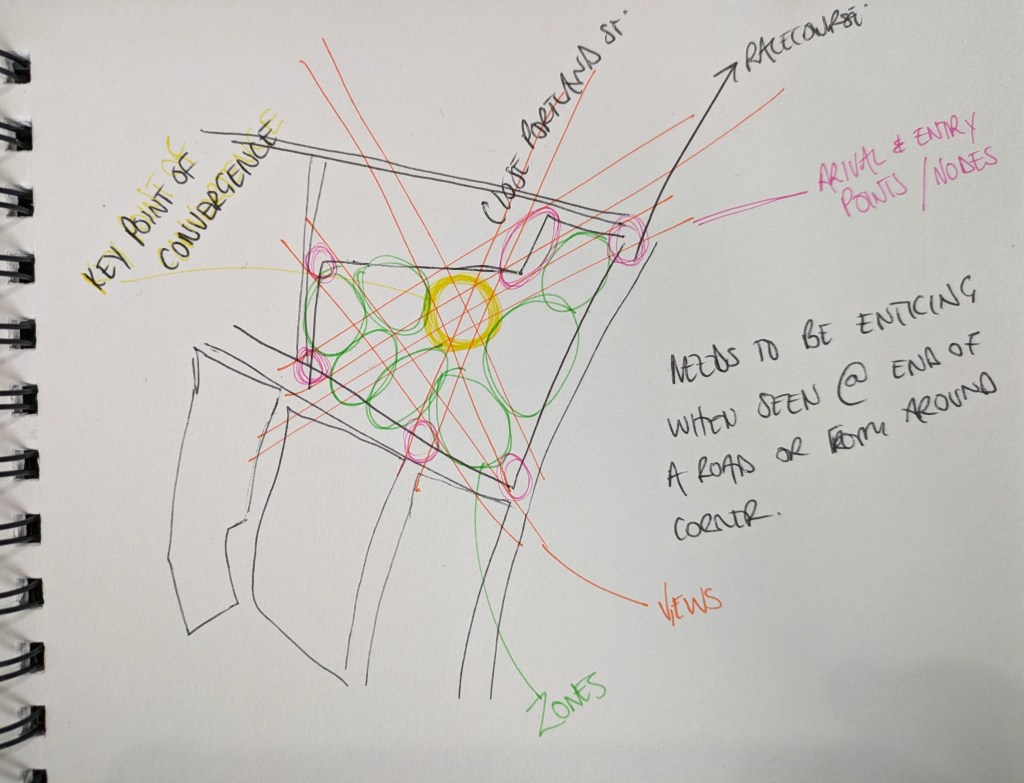 RACECOURSE.
CLOSE PORTLAND ST.
ARIVAL & ENTRY
POINTS / NODES
KEY POINT OF
CONVERGENCE
NEEDS TO BE ENTICING
WHEN SEEN @ END OF
A ROAD OR FROM AROUND
CORNER.
VIEWS
ZONES